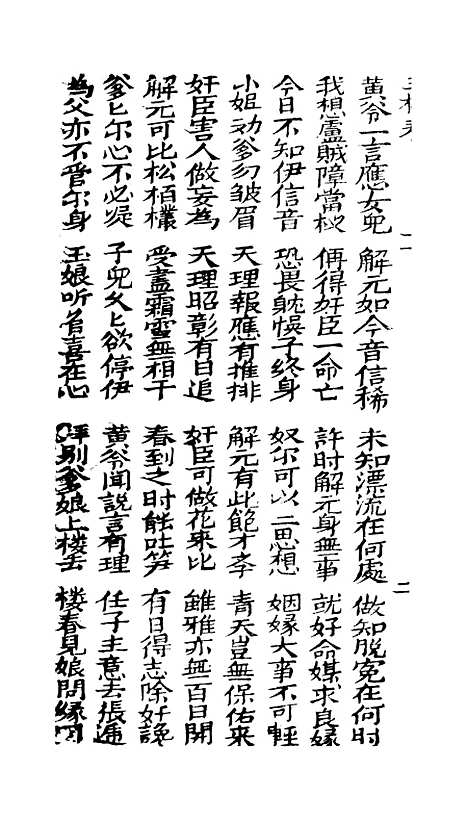 黃爷一言應女兒 解元如今音信稀 未知漂流在何處 做知脫冤在何时
我想盧賊障當权 得奸臣一命亡 許时解元身無事 就好命媒求良緣
今日不知伊信音 恐畏耽悞子終身 奴尔可以二思想 姻緣大事不可輕
小姐劝爹勿皱眉 天理報應有推排 解元有此飽才李 青天豈無保佑來
奸臣害人做妄為 天理昭彰有日追 奸臣可做花來比 雖雅亦無百日開
解元可比松栢欉 受盡霜雪無相干 春到之时能吐笋 有日得志除奸讒
爹匕尔心不必提 子兒父匕欲停伊 黃爷聞説言有理 任子主意去張逓
為父亦不管尔身 玉娘听着喜在心 拜别爹娘上楼去 楼春見娘問緣因
二